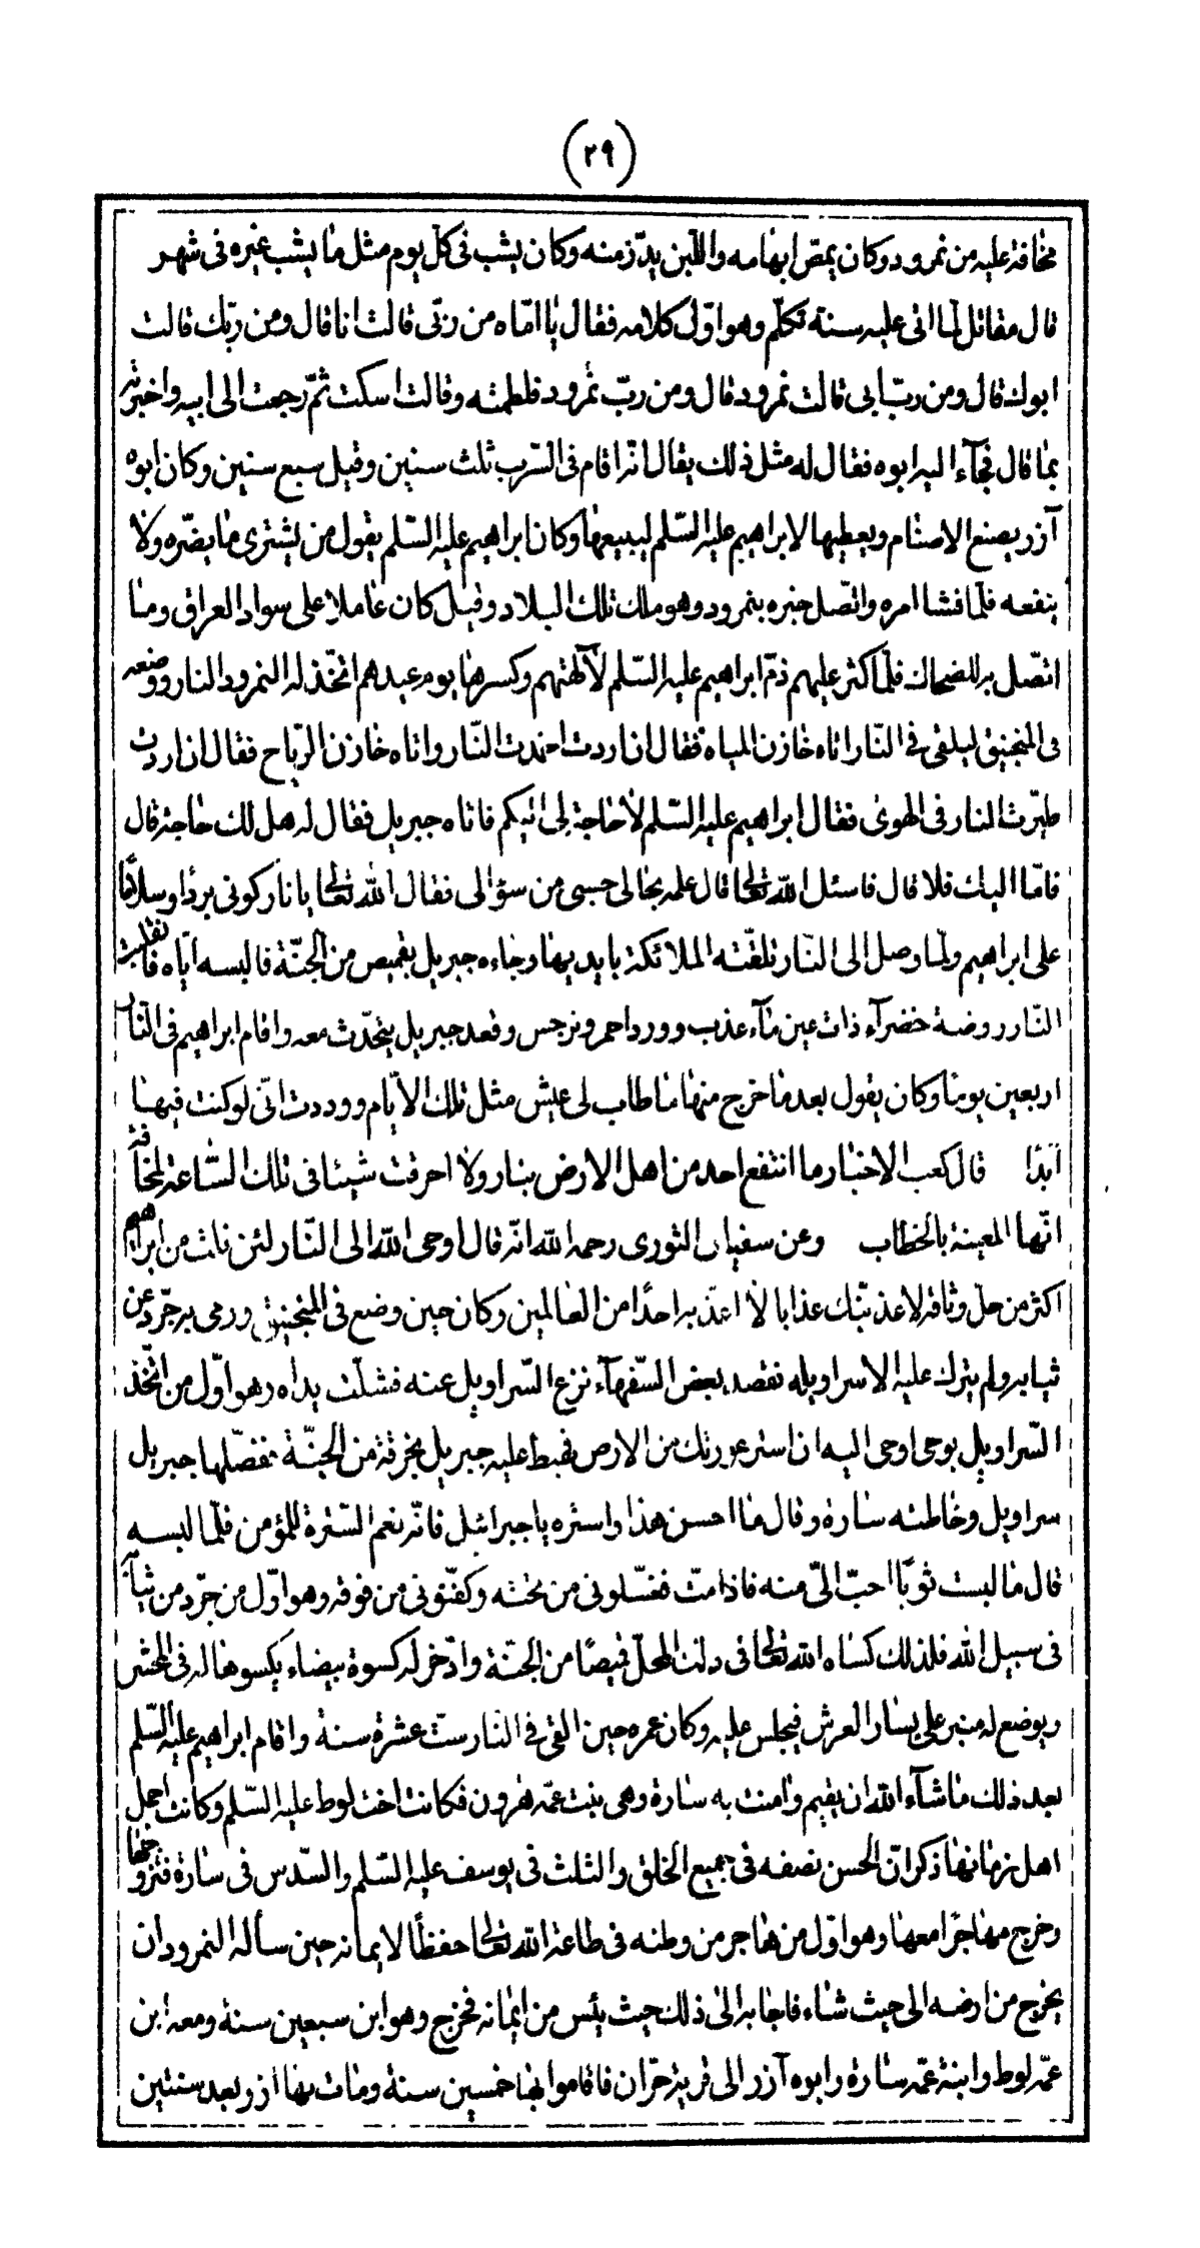 (٢٩)
مخافة عليه من نمرود وكان يمصّ ابهامه واللبن يدّر منه وكان يشب فى كلّ يوم مثل ما يشب غيره فى شهر
قال مقاتل لما اتى عليه سنة تكلّم وهو اوّل كلامه فقال يا امّاه من ربّى قالت انا قال ومن ربّك قالت
ابوك قال ومن ربّ ابى قالت نمرود قال ومن ربّ نمرود فلطمته وقالت اسكت ثمّ رجعت الى ابيه واخبرته
بما قال فجآء اليه ابوه فقال له مثل ذلك يقال انّه اقام فى السّرب ثلث سنين وقيل سبع سنين وكان ابوه
آزر يصنع الاصنام ويعطيها لابراهيم عليه السّلم ليبيعها وكان ابراهيم عليه السّلم يقول من يشترى ما يضّره ولا
ينفعه فلما فشا امره واتّصل خبره بنمرود وهو ملك تلك البلاد وقيل كان عاملا على سواد العراق وما
اتصّل به للضحاك فلمّا كثر عليهم ذمّ ابراهيم عليه السّلم لآلهتهم وكسرها يوم عيدهم اتخّذ له النمرود النار ووضعه
فى المنجنيق ليلقى فى النّار اتاه خازن المياه فقال ان اردت اخمدت النّار واتاه خازن الرّياح فقال ان اردت
طيّرت النار فى الهوى فقال ابراهيم عليه السّلم لا حاجة لى اليكم فاتاه جبريل فقال له هل لك حاجة قال
فامّا اليك فلا قال فاسئل الله تعالى قال علمه بحالى حسبى من سؤالى فقال الله تعالى يا نار كونى بردًا وسلامًا
على ابراهيم ولمّا وصل الى النّار تلقّته الملائكة بايديها وجاءه جبريل بقميص من الجنّة فالبسه ايّاه فانقلبت
النّار روضة خضرآء ذات عين مآء عذب وورد احمر ونرجس وقعد جبريل يتحدّث معه واقام ابراهيم فى النّار
اربعين يوما وكان يقول بعد ما خرج منها ما طاب لى عيش مثل تلك الايّام ووددت انّى لو كنت فيها
ابدًا قال كعب الاخبار ما انتفع احد من اهل الارض بنار ولا احرقت شيئا فى تلك السّاعة لمخافة
انّها المعينة بالخطاب وعن سفيان الثورى رحمه الله انّه قال اوحى الله الى النّار لئن نلت من ابراهيم
اكثر من حلّ وثاقه لاعذّبنّك عذابا لا اعذّبه احدًا من العالمين وكان حين وضع فى المنجنيق ورمى به جرّد عن
ثيابه ولم يترك عليه الا سراويله فقصد بعض السّفهآء نزع السّراويل عنه فشلّت يداه وهو اوّل من اتّخذ
السّراويل بوحى اوحى اليه ان استر عورتك من الارض فهبط عليه جبريل بخرقة من الجنّة ففصّلها جبريل
سراويل وخاطته سارة وقال ما احسن هذا واستره يا جبرائيل فانّه نعم السّترة للمؤمن فلمّا لبسه
قال ما لبست ثوبًا احبّ الىّ منه فاذا متّ فغسّلونى من تحته وكفّنونى من فوقه وهو اوّل من جرّد من ثيابه
فى سبيل الله فلذلك كساه الله تعالى فى ذلك المحلّ قميصًا من الجنّة وادّخر له كسوة بيضاء يكسوها له فى المحشر
ويوضع له منبر على يسار العرش فيجلس عليه وكان عمره حين القى فى النّار ستّ عشرة سنة واقام ابراهيم عليه السّلم
بعد ذلك ما شآء الله ان يقيم وامنت به سارة وهى بنت عمّه هرون فكانت اخت لوط عليه السّلم وكانت اجمل
اهل زمانها ذكر انّ الحسن نصفه فى جميع الخلق والثلث فى يوسف عليه السّلم والسّدس فى سارة فتزوّجها
وخرج مهاجرًا معها وهو اوّل من هاجر من وطنه فى طاعة الله تعالى حفظًا لايمانه حين سأله النمرود ان
يخرج من ارضه الى حيث شاء فاجابه الى ذلك حيث يئس من ايمانه فخرج وهو ابن سبعين سنة ومعه ابن
عمّه لوط وابنة عمّه سارة وابوه آزر الى قرية حرّان فاقاموا بها خمسين سنة ومات بها ازر وبعد سنتين